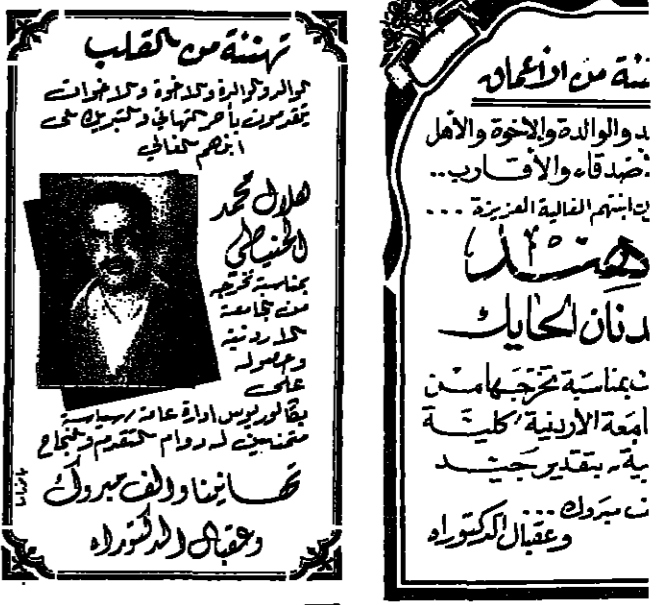 تهنئة من القلب
الوالد والوالدة والاخوة والاخوات
يتقدمون بأحر التهاني والتبريك الى
ابنهم الغالي
هلال محمد
الحنيطي
بمناسبة تخرجه
من الجامعة
الاردنية
وحصوله
على
بكالوريوس ادارة عامة / سياسة
متمنين له دوام التقدم والنجاح
تهانينا والف مبروك
وعقبال الدكتوراه
ئة من الأعماق
د والوالدة والاخوة والأهل
صدقاء والأقارب..
ابنتهم الغالية العزيزة ...
هند
دنان الحايك
بمناسبة تخرجها من
امعة الاردنية / كلية
بية بتقدير جيد
ف مبروك ...
وعقبال الدكتوراه